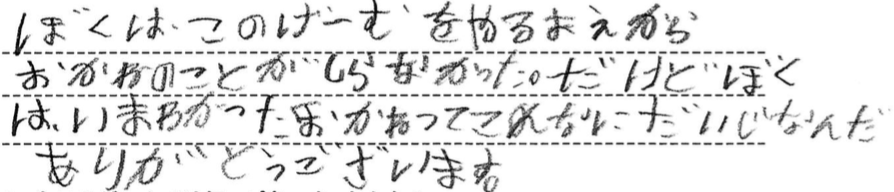 ぼくは、このげーむをやるまえから
おかねのことがしらなかった。だけどぼく
は、いまわかったおかねってこんなにだいじなんだ
ありがとうございます。